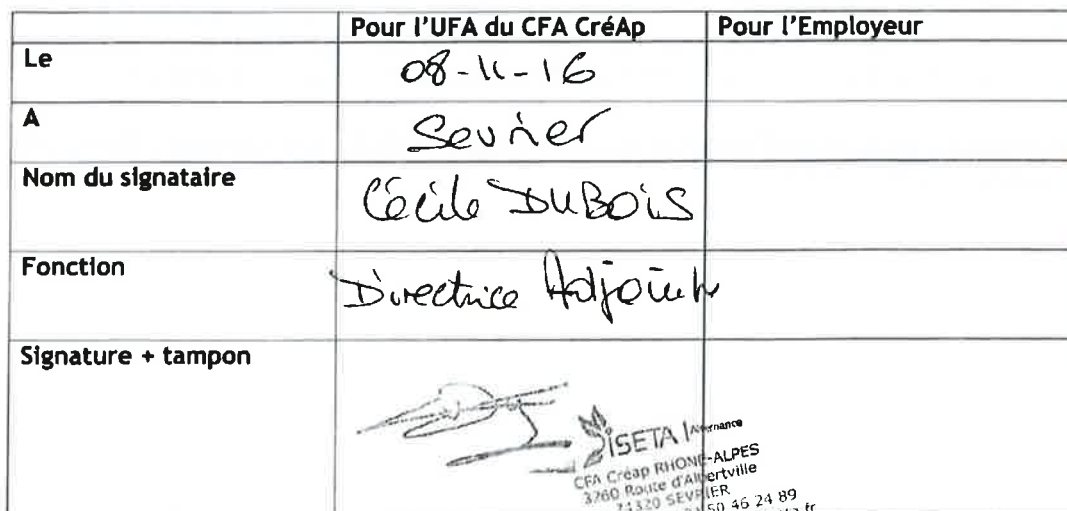 Pour l'UFA du CFA CréAp Pour l'Employeur
Le 08-11-16
A Sevrier
Nom du signataire Cécile DUBOIS
Fonction Directrice Adjointe
Signature + tampon
ISETA | Alternance
CFA Créap RHONE-ALPES
3260 Route d'Albertville
74320 SEVRIER
50 46 24 89
.fr